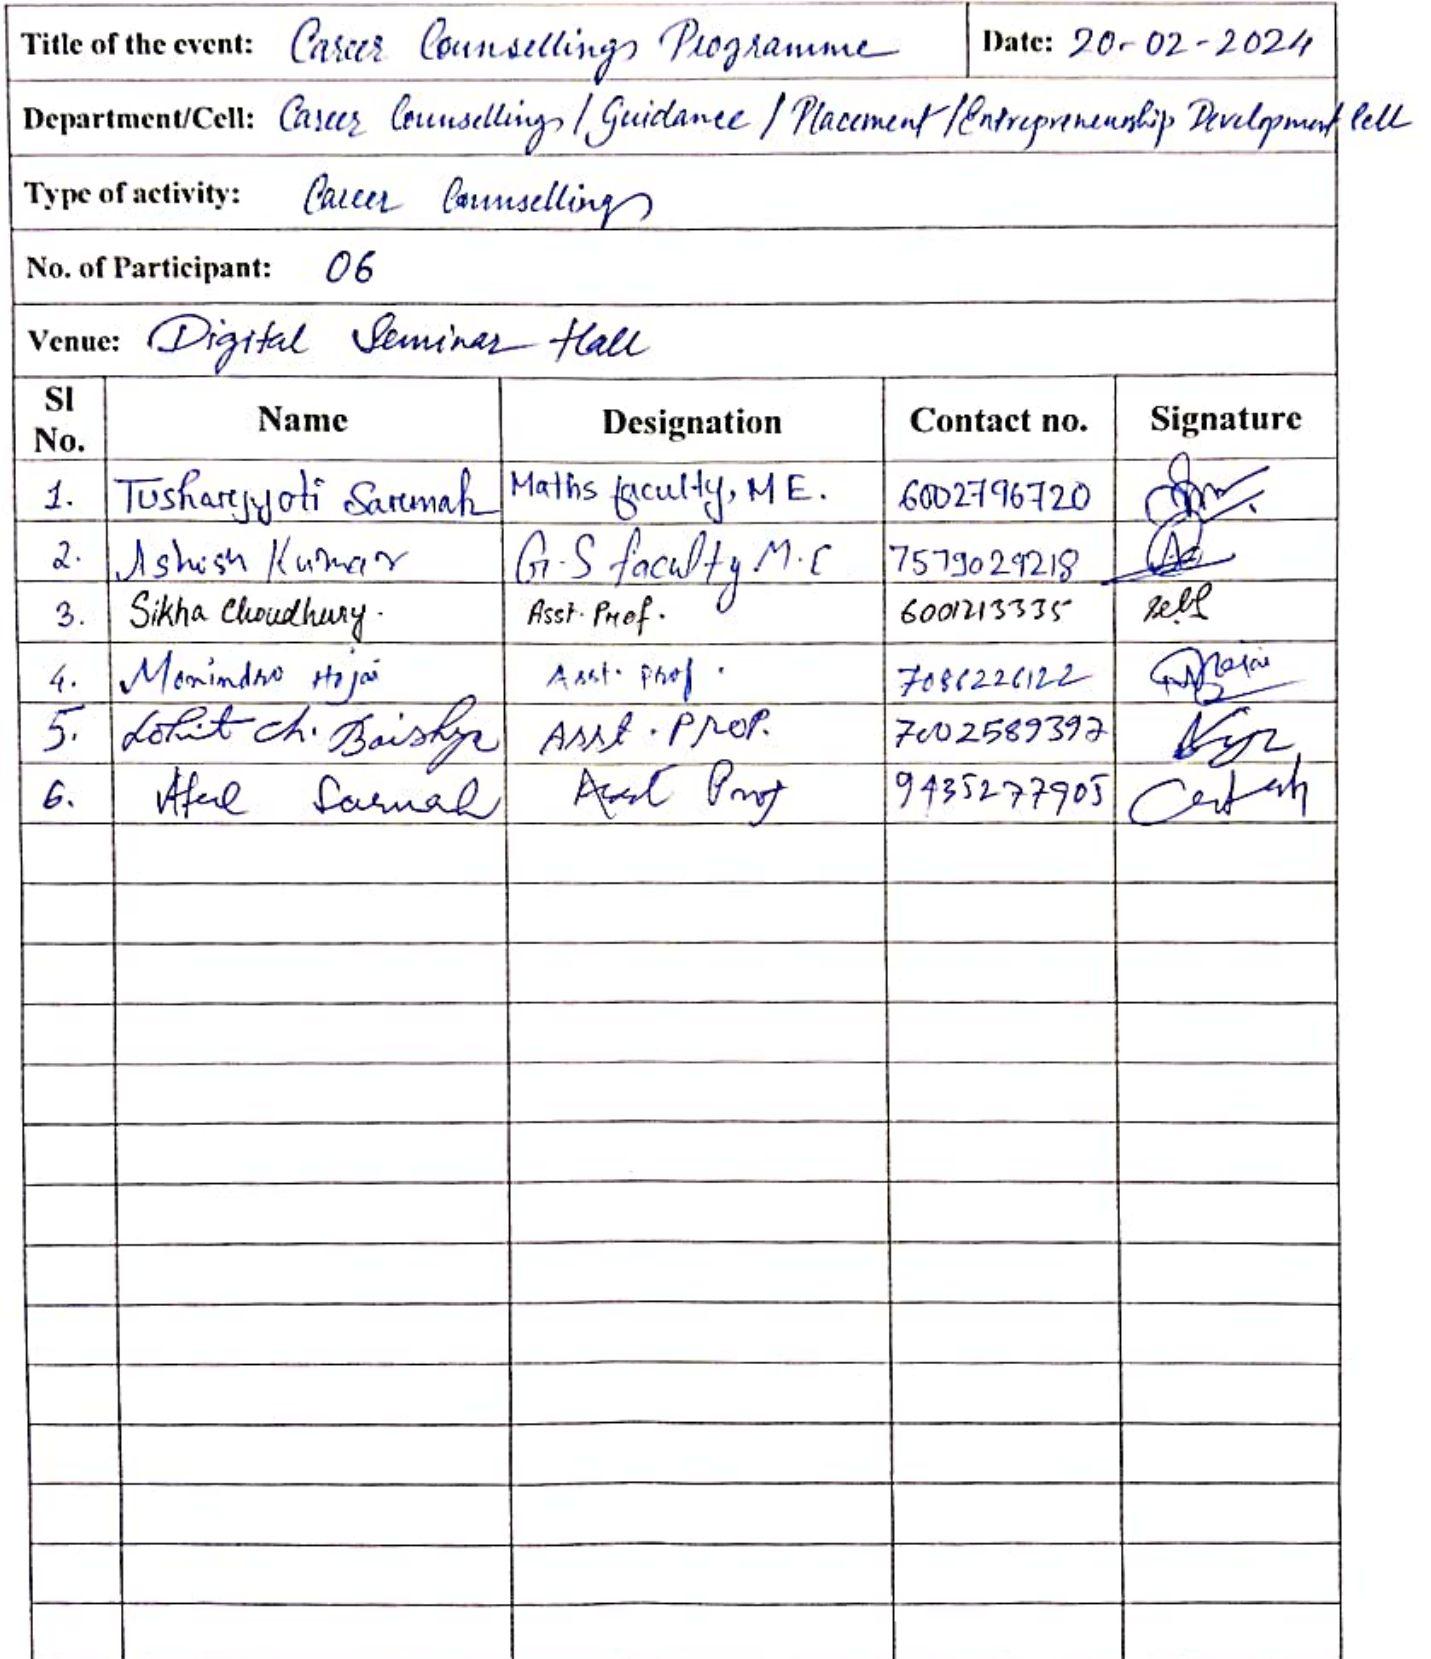 Title of the event: Career Counsellings Programme Date: 20-02-2024
Department/Cell: Career Counsellings / Guidance / Placement / Entrepreneurship Development Cell
Type of activity: Career Counsellings
No. of Participant: 06
Venue: Digital Seminar Hall
Sl No. Name Designation Contact no. Signature
1. Tusharjyoti Sarmah Maths faculty, M E. 6002796720
2. Ashish Kumar G.S faculty M.E 7579029218
3. Sikha Choudhury. Asst. Prof. 6001213335 Self
4. Monindro Hojai Asst. Prof. 7086226122
5. Lohit Ch. Baishya Asst. Prof. 7002589397
6. Sarmah Asst Prof 9435277905